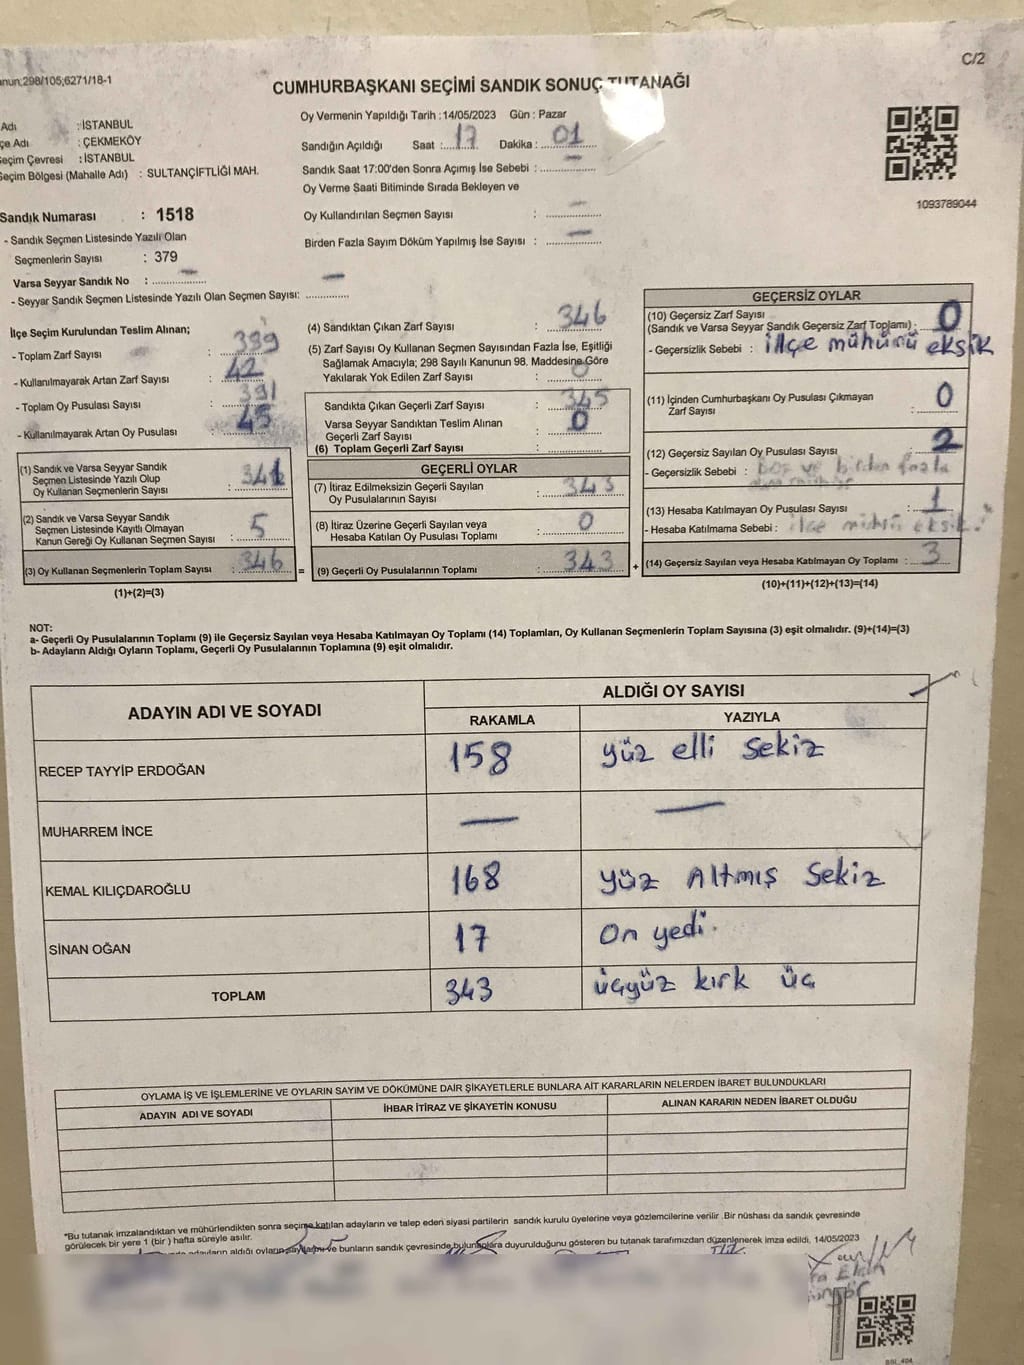 C/2
anun:298/105;6271/18-1
CUMHURBAŞKANI SEÇİMİ SANDIK SONUÇ TUTANAĞI
Adı : İSTANBUL
çe Adı : ÇEKMEKÖY
eçim Çevresi : İSTANBUL
eçim Bölgesi (Mahalle Adı) : SULTANÇİFTLİĞİ MAH.
Sandık Numarası : 1518
- Sandık Seçmen Listesinde Yazılı Olan
Seçmenlerin Sayısı : 379
Varsa Seyyar Sandık No : —
- Seyyar Sandık Seçmen Listesinde Yazılı Olan Seçmen Sayısı: —
Oy Vermenin Yapıldığı Tarih : 14/05/2023 Gün : Pazar
Sandığın Açıldığı Saat : 17 Dakika : 01
Sandık Saat 17:00'den Sonra Açımış İse Sebebi : —
Oy Verme Saati Bitiminde Sırada Bekleyen ve
Oy Kullandırılan Seçmen Sayısı : —
Birden Fazla Sayım Döküm Yapılmış İse Sayısı : —
1093789044
İlçe Seçim Kurulundan Teslim Alınan;
- Toplam Zarf Sayısı :
- Kullanılmayarak Artan Zarf Sayısı : 42
- Toplam Oy Pusulası Sayısı : 391
- Kullanılmayarak Artan Oy Pusulası : 45
(1) Sandık ve Varsa Seyyar Sandık
Seçmen Listesinde Yazılı Olup
Oy Kullanan Seçmenlerin Sayısı : 341
(2) Sandık ve Varsa Seyyar Sandık
Seçmen Listesinde Kayıtlı Olmayan
Kanun Gereği Oy Kullanan Seçmen Sayısı : 5
(3) Oy Kullanan Seçmenlerin Toplam Sayısı : 346
(1)+(2)=(3)
(4) Sandıktan Çıkan Zarf Sayısı : 346
(5) Zarf Sayısı Oy Kullanan Seçmen Sayısından Fazla İse, Eşitliği
Sağlamak Amacıyla; 298 Sayılı Kanunun 98. Maddesine Göre
Yakılarak Yok Edilen Zarf Sayısı : 0
Sandıkta Çıkan Geçerli Zarf Sayısı : 345
Varsa Seyyar Sandıktan Teslim Alınan
Geçerli Zarf Sayısı : 0
(6) Toplam Geçerli Zarf Sayısı :
GEÇERLİ OYLAR
(7) İtiraz Edilmeksizin Geçerli Sayılan
Oy Pusulalarının Sayısı : 343
(8) İtiraz Üzerine Geçerli Sayılan veya
Hesaba Katılan Oy Pusulası Toplamı : 0
= (9) Geçerli Oy Pusulalarının Toplamı : 343
GEÇERSİZ OYLAR
(10) Geçersiz Zarf Sayısı
(Sandık ve Varsa Seyyar Sandık Geçersiz Zarf Toplamı) : 0
- Geçersizlik Sebebi : ilçe mühürü eksik
(11) İçinden Cumhurbaşkanı Oy Pusulası Çıkmayan
Zarf Sayısı : 0
(12) Geçersiz Sayılan Oy Pusulası Sayısı : 2
- Geçersizlik Sebebi : boş ve birden fazla
(13) Hesaba Katılmayan Oy Pusulası Sayısı : 1
- Hesaba Katılmama Sebebi : ilçe mührü eksik
+ (14) Geçersiz Sayılan veya Hesaba Katılmayan Oy Toplamı : 3
(10)+(11)+(12)+(13)=(14)
NOT:
a- Geçerli Oy Pusulalarının Toplamı (9) ile Geçersiz Sayılan veya Hesaba Katılmayan Oy Toplamı (14) Toplamları, Oy Kullanan Seçmenlerin Toplam Sayısına (3) eşit olmalıdır. (9)+(14)=(3)
b- Adayların Aldığı Oyların Toplamı, Geçerli Oy Pusulalarının Toplamına (9) eşit olmalıdır.
ADAYIN ADI VE SOYADI ALDIĞI OY SAYISI
RAKAMLA YAZIYLA
RECEP TAYYİP ERDOĞAN 158 yüz elli sekiz
MUHARREM İNCE — —
KEMAL KILIÇDAROĞLU 168 yüz Altmış Sekiz
SİNAN OĞAN 17 On yedi.
TOPLAM 343 üçyüz kırk üç
OYLAMA İŞ VE İŞLEMLERİNE VE OYLARIN SAYIM VE DÖKÜMÜNE DAİR ŞİKAYETLERLE BUNLARA AİT KARARLARIN NELERDEN İBARET BULUNDUKLARI
ADAYIN ADI VE SOYADI İHBAR İTİRAZ VE ŞİKAYETİN KONUSU ALINAN KARARIN NEDEN İBARET OLDUĞU
*Bu tutanak imzalandıktan ve mühürlendikten sonra seçime katılan adayların ve talep eden siyasi partilerin sandık kurulu üyelerine veya gözlemcilerine verilir .Bir nüshası da sandık çevresinde
görülecek bir yere 1 (bir ) hafta süreyle asılır.
adayların aldığı oyların sayılarını ve bunların sandık çevresinde bulunanlara duyurulduğunu gösteren bu tutanak tarafımızdan düzenlenerek imza edildi. 14/05/2023